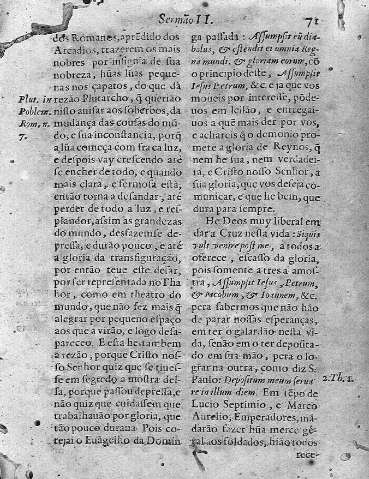 Sermão II. 71
dos Romanos, aprēdido dos
Arcadios, trazerem os mais
nobres por insignia de sua
nobreza, hũas luas peque-
nas nos çapatos, do que dá
Plut. in
Poblem.
Rom. n.
7.
rezão Plutarcho, q̃ queriáo
nisso auisar aos soberbos, da
mudança das cousas do mũ-
do, e sua inconstancia, porq̃
a lũa começa com fraca luz,
e despois vay crescendo até
se encher de todo, e quando
mais clara, e fermosa está,
então torna a desandar, até
perder de todo a luz, e res-
plandor, assim as grandezas
do mundo, desfazemse de-
pressa, e durão pouco, e até
a gloria da transfiguração,
por então teue este desar,
por ser representado no Tha
bor, como em theatro do
mundo, que não fez mais q̃
alegrar por pequeno espaço
aos que a virão, e logo desa-
pareceo. E esta he tambem
a rezão, porque Cristo nos-
so Senhor quiz que se tiues-
se em segredo a mostra des-
sa, porque passou depressa, e
não quiz que cuidassem que
trabalhauão por gloria, que
tão pouco durana Pois co-
tejai o Euãgelho da Domin
ga passada: Assumpsit eũ dia-
bolus, & ostendit ei omnia Reg-
na mundi, & gloriam eorum, cō
o principio deste, Assumpsit
Iesus Petrum, &c. e ja que vos
moueis por interesse, põde-
nos em leilão, e entregai-
uos a quē mais der por vos,
e achareis q̃ o demonio pro-
mete a gloria de Reynos, q̃
nem he sua, nem verdadei-
ra, e Cristo nosso Senhor, a
sua gloria, que vos deseja co-
municar, e que he bem, que
dura para sempre.
He Deos muy liberal em
dar a Cruz nesta vida: Siquis
vult venire post me, a todos a
offerece, escasso da gloria,
pois somente a tres a amos-
tra, Assumpsit Iesus, Petrum,
& Iacobum, & Ioannem, &c.
pera sabermos que não hão
de parar nossas esperanças,
em ter o galardão nesta vi-
da, senão em o ter deposita-
do em sua mão, pera o lo-
grar na outra, como diz S.
Paulo: Depositum meum serua
2. Th. 1.
re in illum diem. Em tēpo de
Lucio Septimio, e Marco
Aurelio, Emperadores, mã-
darão fazer hũa mercé gē-
ral aos soldados, hião todos
rece-